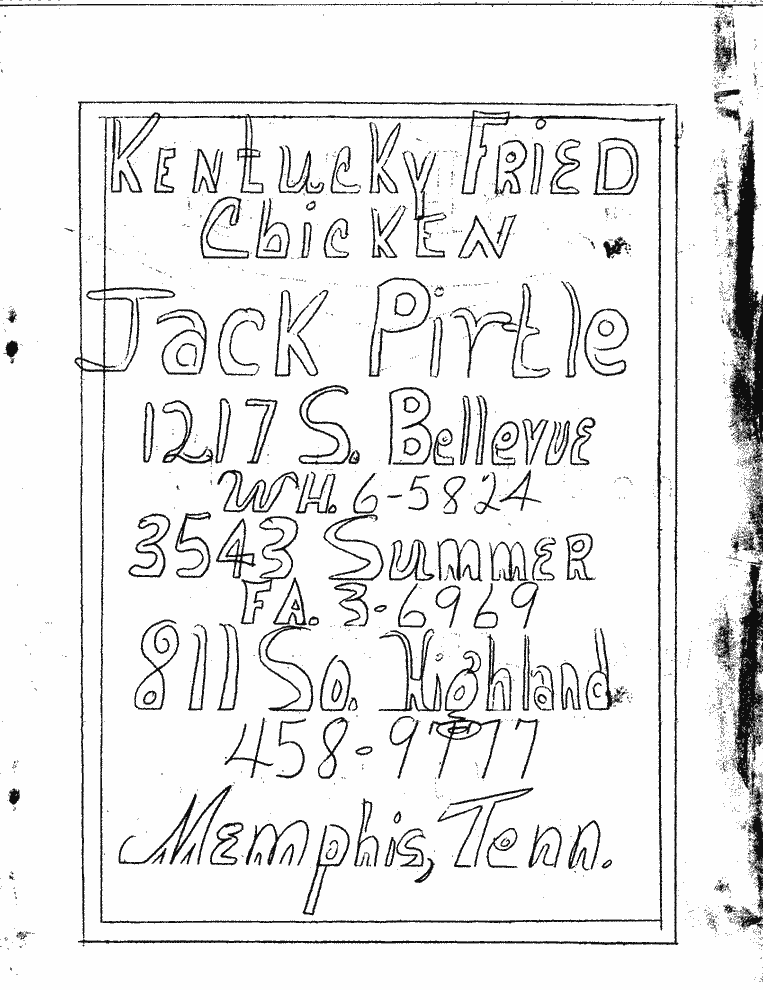 Kentucky Fried
Chicken
Jack Pirtle
1217 S. Bellevue
WH. 6-5824
3543 Summer
FA. 3-6969
811 So. Highland
458-9777
Memphis, Tenn.